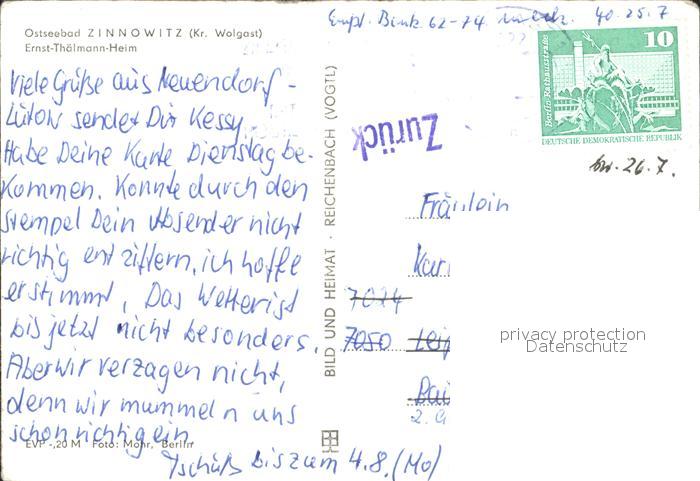 Ostseebad ZINNOWITZ (Kr. Wolgast)
Ernst-Thälmann-Heim
Viele Grüße aus Neuendorf-
Lütow sendet Dir Kessy.
Habe Deine Karte Dienstag be-
kommen. Konnte durch den
Stempel Dein Absender nicht
richtig entziffern, ich hoffe
er stimmt. Das Wetter ist
bis jetzt nicht besonders.
Aber wir verzagen nicht,
denn wir mummeln uns
schon richtig ein.
Tschüß bis zum 4.8. (Mo)
EVP -,20 M Foto: Mohr, Berlin
BILD UND HEIMAT · REICHENBACH (VOGTL)
Empf. 62-74 40. 25.7
Zurück
10
Berlin-Rathausstraße
DEUTSCHE DEMOKRATISCHE REPUBLIK
26.7.
Fräulein
Kari
7024
7050 Leip
2.
privacy protection
Datenschutz